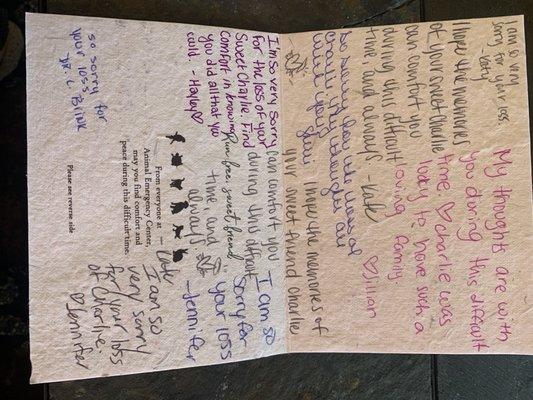 I am so very
sorry for your loss.
Katy
I hope the memories
of your sweet charlie
can comfort you
during this difficult
time and always. - Kate
My thoughts are with
you during this difficult
time. ♡ Charlie was
lucky to have such a
loving family.
♡ Jillian
So sorry for the loss of
Charlie. My thoughts are
with you.
I hope the memories of
your sweet friend charlie
can comfort you
during this difficult
time and
always.
- Kate
I'm so very sorry
for the loss of your
sweet Charlie. Find
comfort in knowing
you did all that you
could. - Hayley ♡
Run free sweet friend
I am so
sorry for
your loss
- Jennifer
so sorry for
your loss
Dr. C Blink
From everyone at
Animal Emergency Center,
may you find comfort and
peace during this difficult time.
Please see reverse side
I am so
very sorry
for your loss
of Charlie.
♡ Jennifer